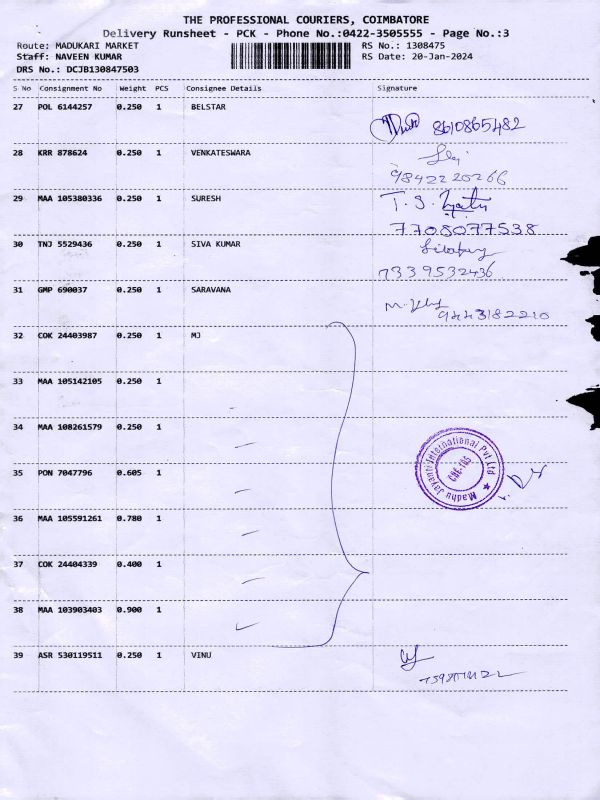 THE PROFESSIONAL COURIERS, COIMBATORE
Delivery Runsheet - PCK - Phone No.:0422-3505555 - Page No.:3
Route: MADUKARI MARKET RS No.: 1308475
Staff: NAVEEN KUMAR RS Date: 20-Jan-2024
DRS No.: DCJB130847503
S No Consignment No Weight PCS Consignee Details Signature
27 POL 6144257 0.250 1 BELSTAR
8610865482
28 KRR 878624 0.250 1 VENKATESWARA
9842220266
29 MAA 105380336 0.250 1 SURESH T. S.
7708077538
30 TNJ 5529436 0.250 1 SIVA KUMAR
7339532436
31 GMP 690037 0.250 1 SARAVANA
9443182210
32 COK 24403987 0.250 1 MJ
33 MAA 105142105 0.250 1
34 MAA 108261579 0.250 1
35 PON 7047796 0.605 1
Madhu Jayanti International Pvt Ltd
CBE-TBS
36 MAA 105591261 0.780 1
37 COK 24404339 0.400 1
38 MAA 103903403 0.900 1
39 ASR 530119511 0.250 1 VINU